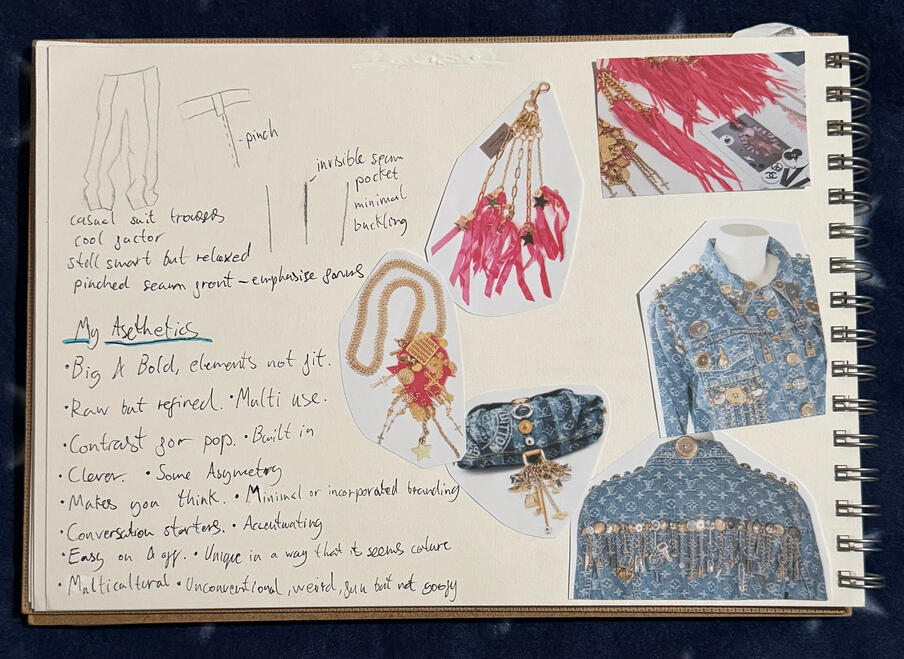 -pinch
invisible seam
pocket
minimal
buckling
casual suit trousers
cool factor
still smart but relaxed
pinched seam front - emphasise forms
My Asethetics
•Big & Bold, elements not fit.
•Raw but refined. •Multi use.
•Contrast for pop. •Built in
•Clever. •Some Asymetry
•Makes you think. •Minimal or incorporated branding
•Conversation starters. •Accentuating
•Easy on & off. •Unique in a way that it seems coture
•Multicultural •Unconventional, weird, fun but not goofy